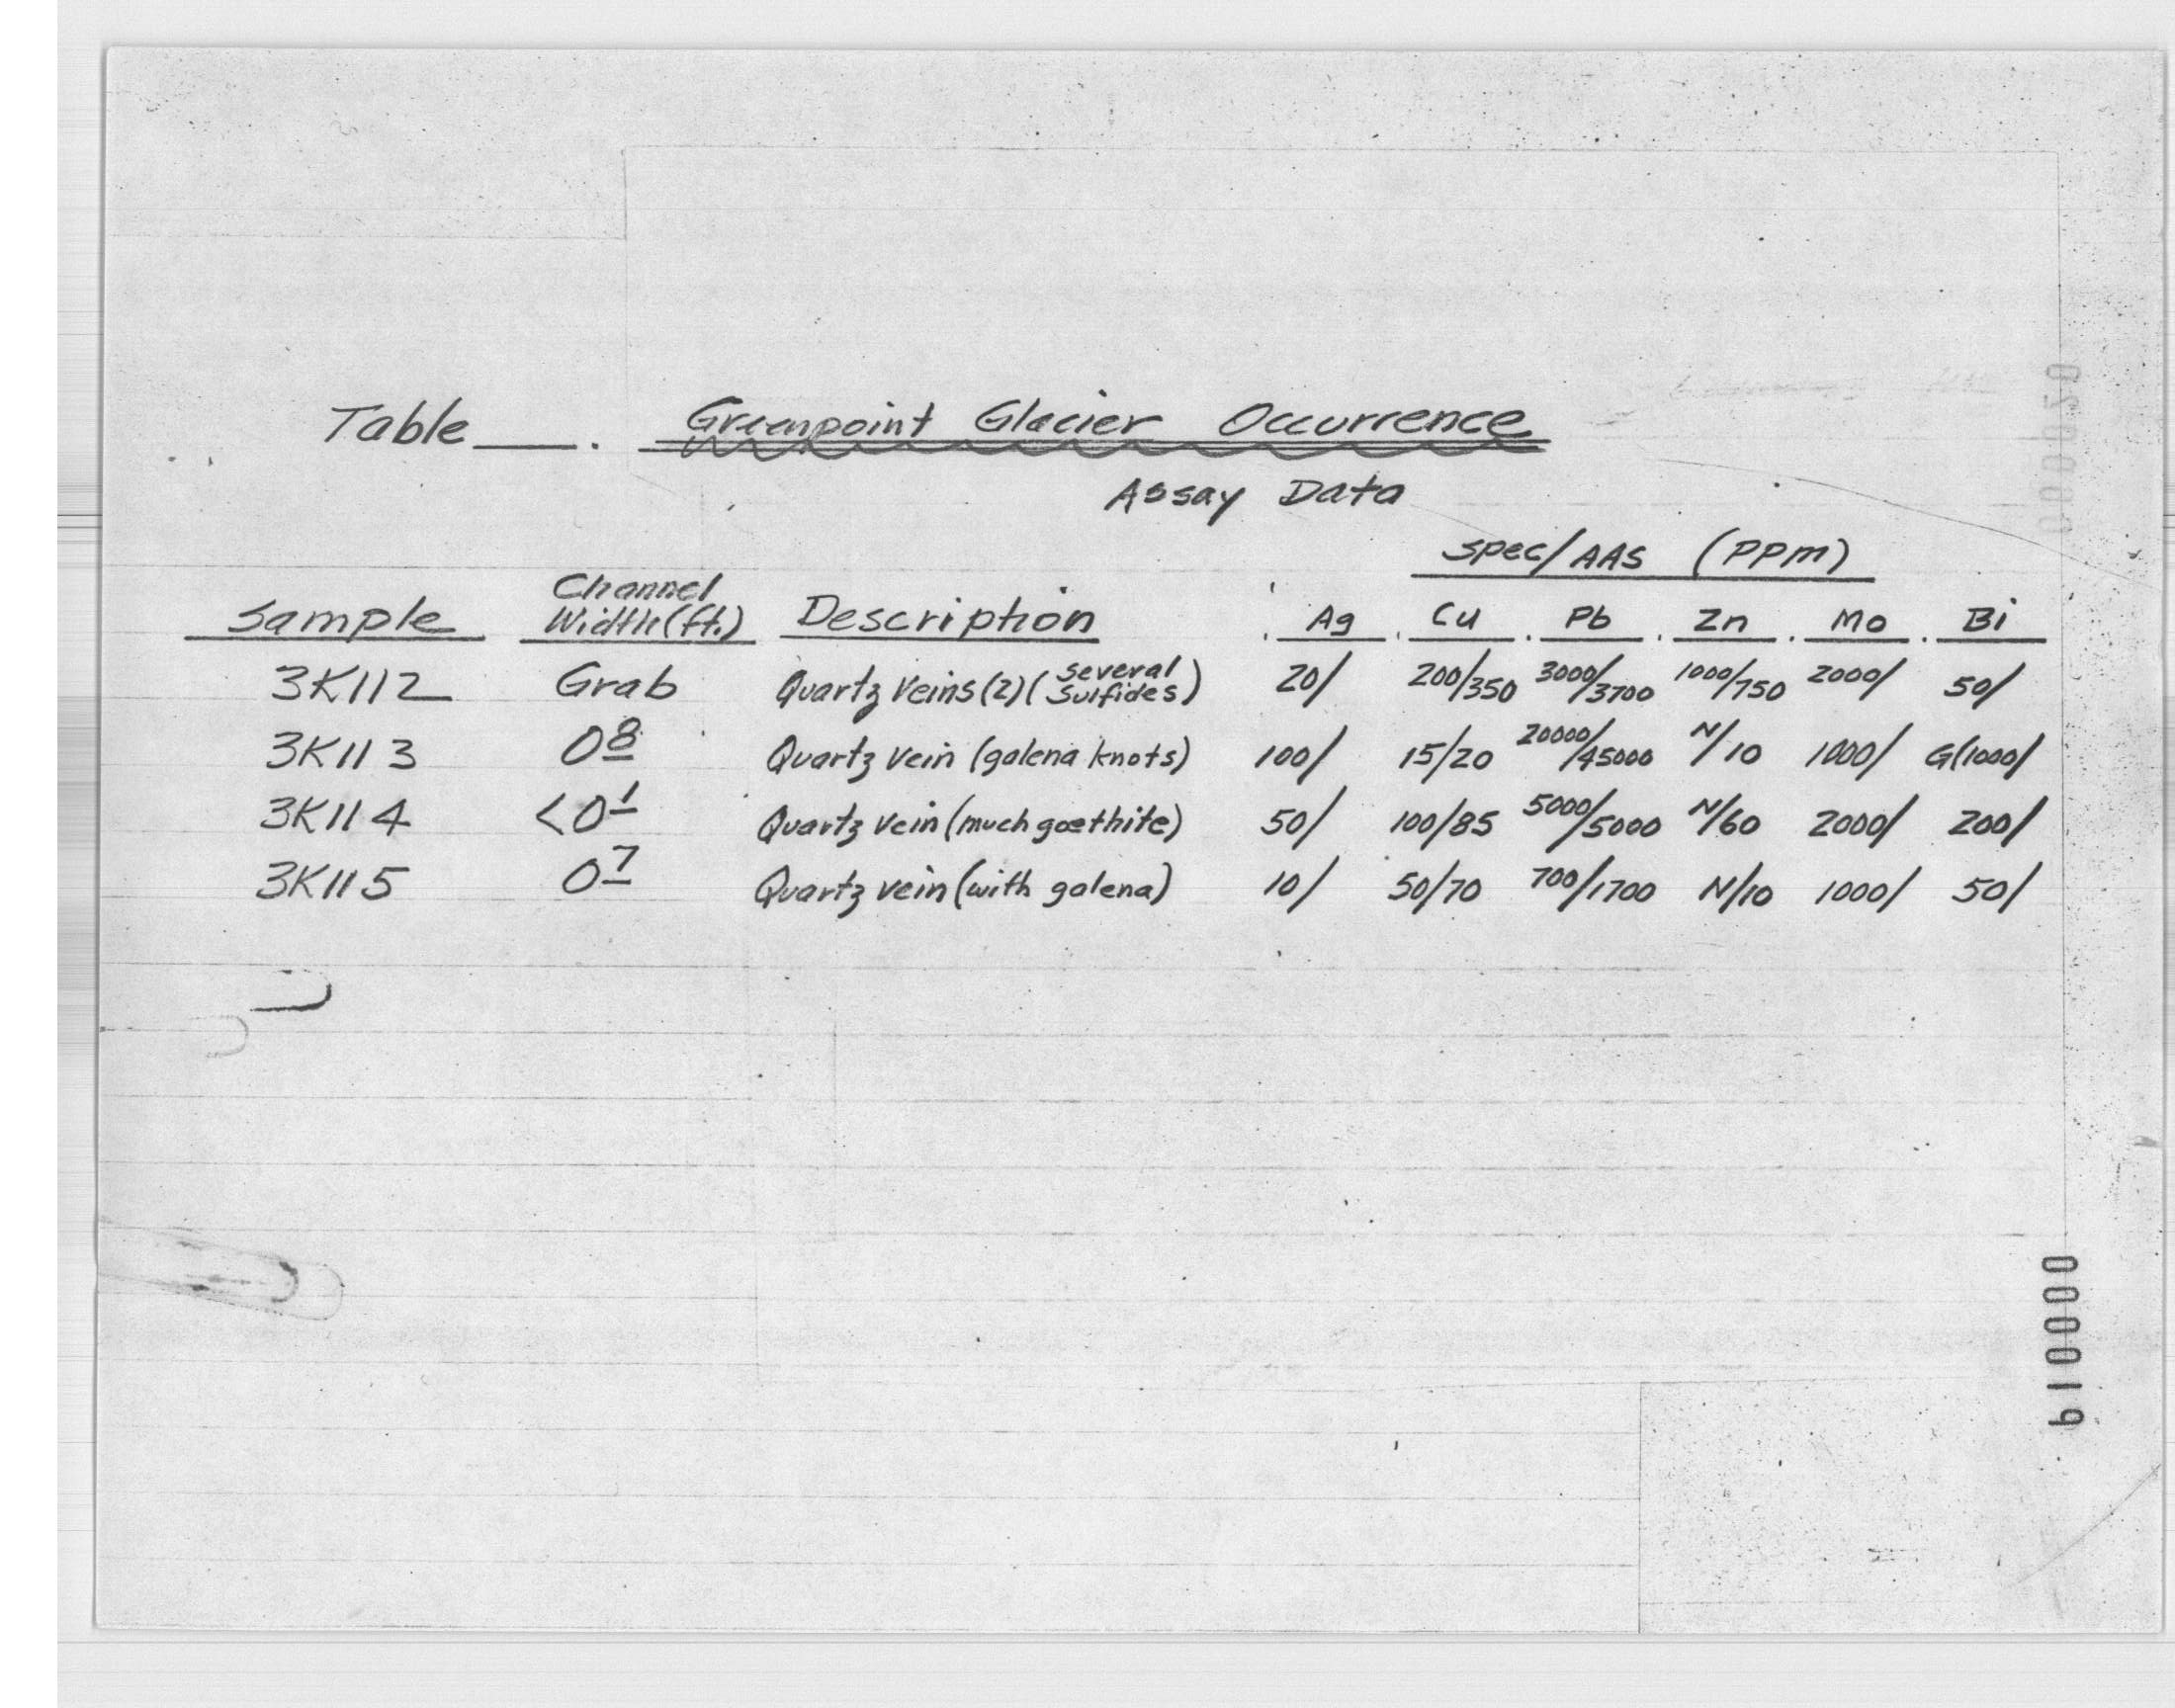 Table ___. Greenpoint Glacier Occurrence
Assay Data
Spec/AAS (PPm)
Sample Channel Width (ft.) Description Ag Cu Pb Zn Mo Bi
3K112 Grab Quartz Veins (2) (several sulfides) 20/ 200/350 3000/3700 1000/750 2000/ 50/
3K113 0 8 Quartz Vein (galena knots) 100/ 15/20 20000/45000 N/10 1000/ G(1000/
3K114 <0 1 Quartz vein (much goethite) 50/ 100/85 5000/5000 N/60 2000/ 200/
3K115 0 7 Quartz vein (with galena) 10/ 50/70 700/1700 N/10 1000/ 50/
000019